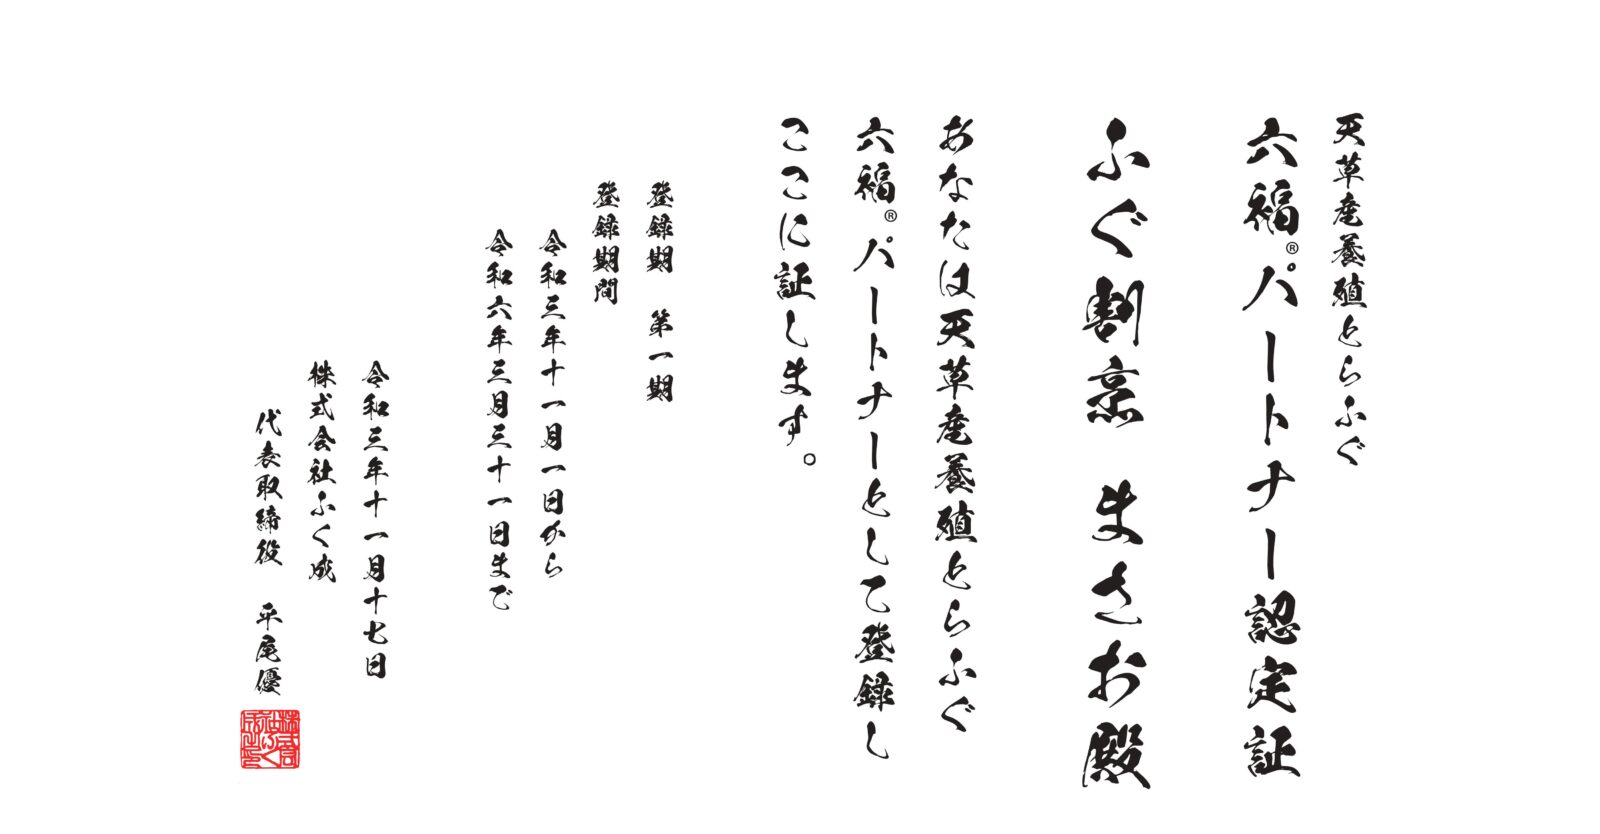 天草産養殖とらふぐ
六福®パートナー認定証
ふぐ割烹 まさお殿
あなたは天草産養殖とらふぐ
六福®パートナーとして登録し
ここに証します。
登録期 第一期
登録期間
令和三年十一月一日から
令和六年三月三十一日まで
令和三年十一月十七日
株式会社ふく成
代表取締役 平尾優